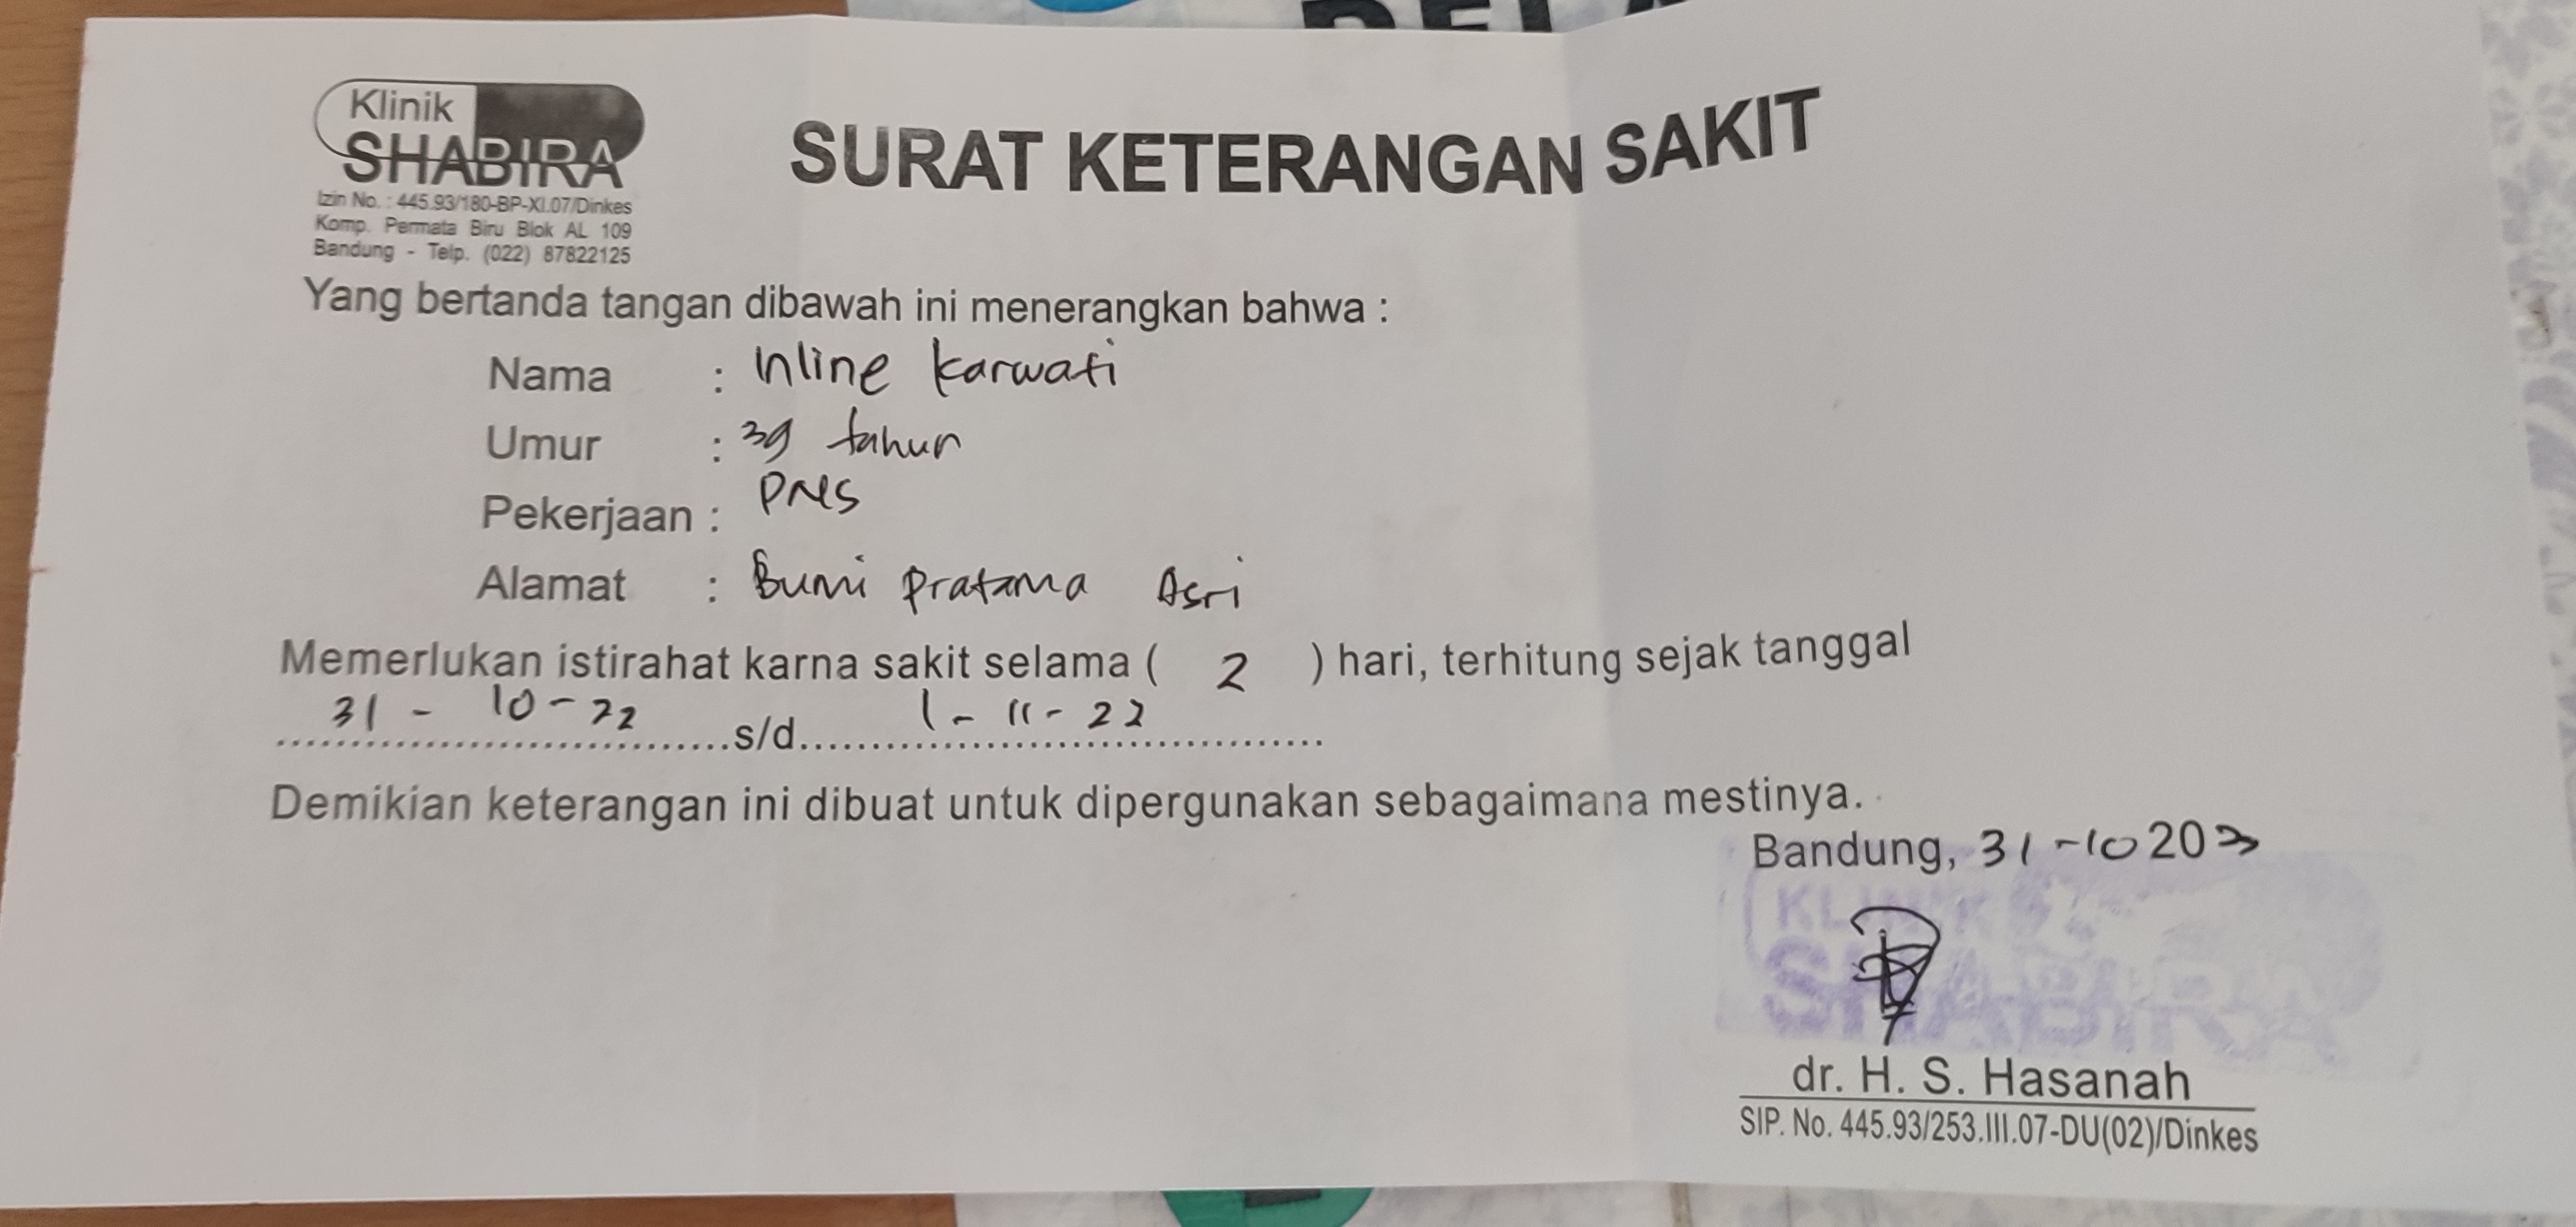 Klinik
SHABIRA
Izin No. : 445.93/180-BP-XI.07/Dinkes
Komp. Permata Biru Blok AL 109
Bandung - Telp. (022) 87822125
SURAT KETERANGAN SAKIT
Yang bertanda tangan dibawah ini menerangkan bahwa :
Nama : Inline Karwati
Umur : 39 tahun
Pekerjaan : PNS
Alamat : Bumi Pratama Asri
Memerlukan istirahat karna sakit selama ( 2 ) hari, terhitung sejak tanggal
31 - 10 - 22 s/d 1 - 11 - 22
Demikian keterangan ini dibuat untuk dipergunakan sebagaimana mestinya.
Bandung, 31 - 10 2022
KLINIK
SHABIRA
dr. H. S. Hasanah
SIP. No. 445.93/253.III.07-DU(02)/Dinkes